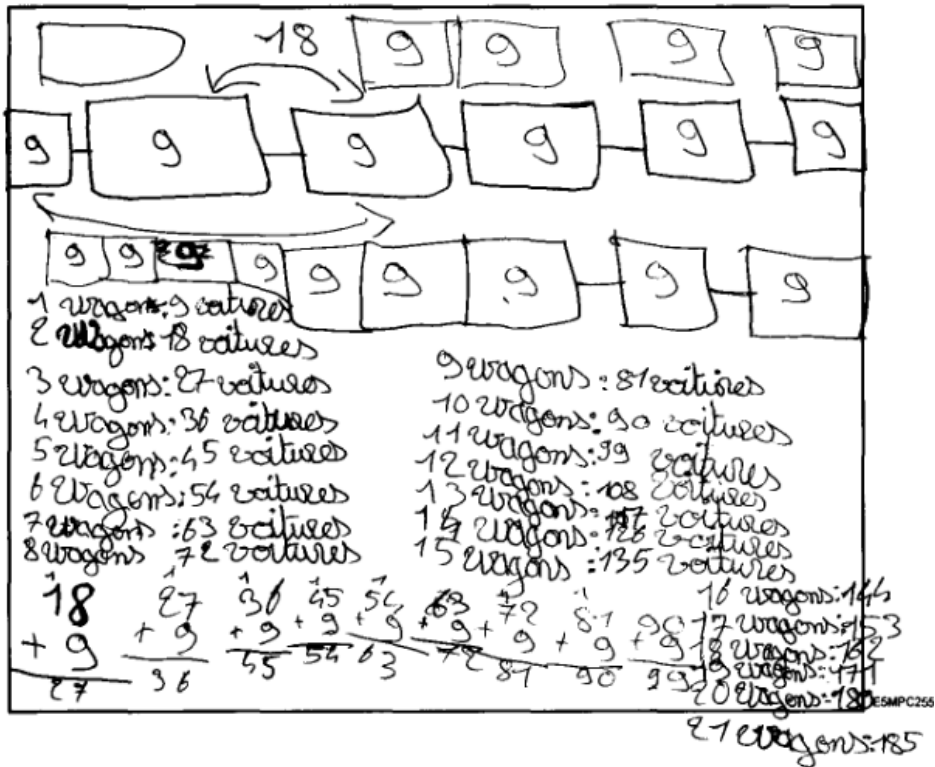 18 9 9 9 9
9 9 9 9 9 9
9 9 9 9 9 9 9 9 9
1 wagon: 9 voitures
2 wagons 18 voitures
3 wagons: 27 voitures
4 wagons: 36 voitures
5 wagons: 45 voitures
6 wagons: 54 voitures
7 wagons: 63 voitures
8 wagons 72 voitures
9 wagons: 81 voitures
10 wagons: 90 voitures
11 wagons: 99 voitures
12 wagons: 108 voitures
13 wagons: 117 voitures
14 wagons: 126 voitures
15 wagons: 135 voitures
16 wagons: 144
17 wagons: 153
18 wagons: 162
19 wagons: 171
20 wagons: 180
21 wagons: 185
18 27 36 45 54 63 72 81 90
+ 9 + 9 + 9 + 9 + 9 + 9 + 9 + 9 + 9
27 36 45 54 63 72 81 90 99
E5MPC255